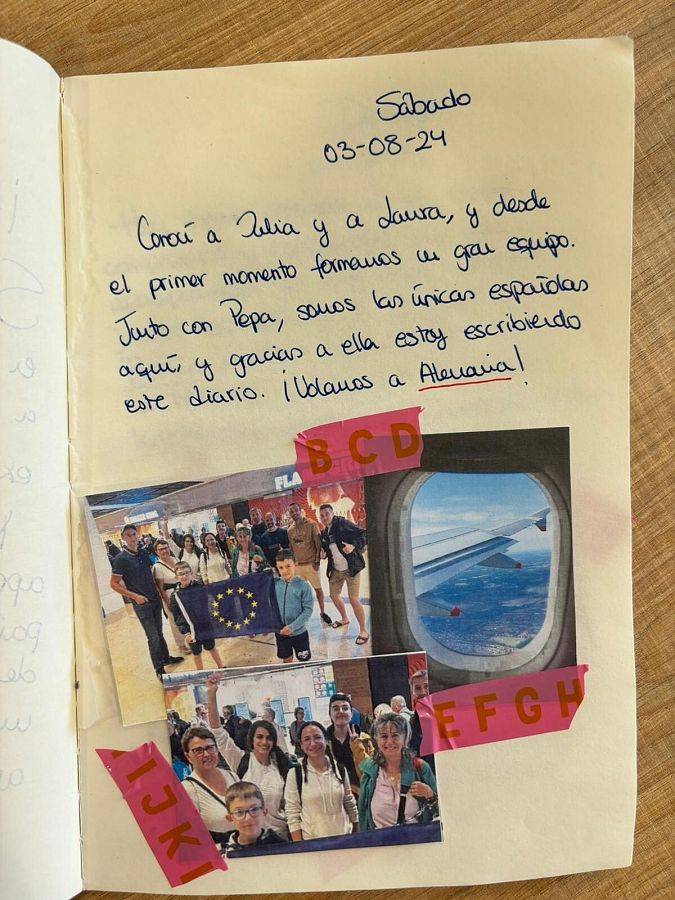 Sábado
03-08-24
Conocí a Julia y a Laura, y desde
el primer momento formamos un gran equipo.
Junto con Pepa, somos las únicas españolas
aquí, y gracias a ella estoy escribiendo
este diario. ¡Volamos a Alemania!
BCD
FLA
EFGH
IJK